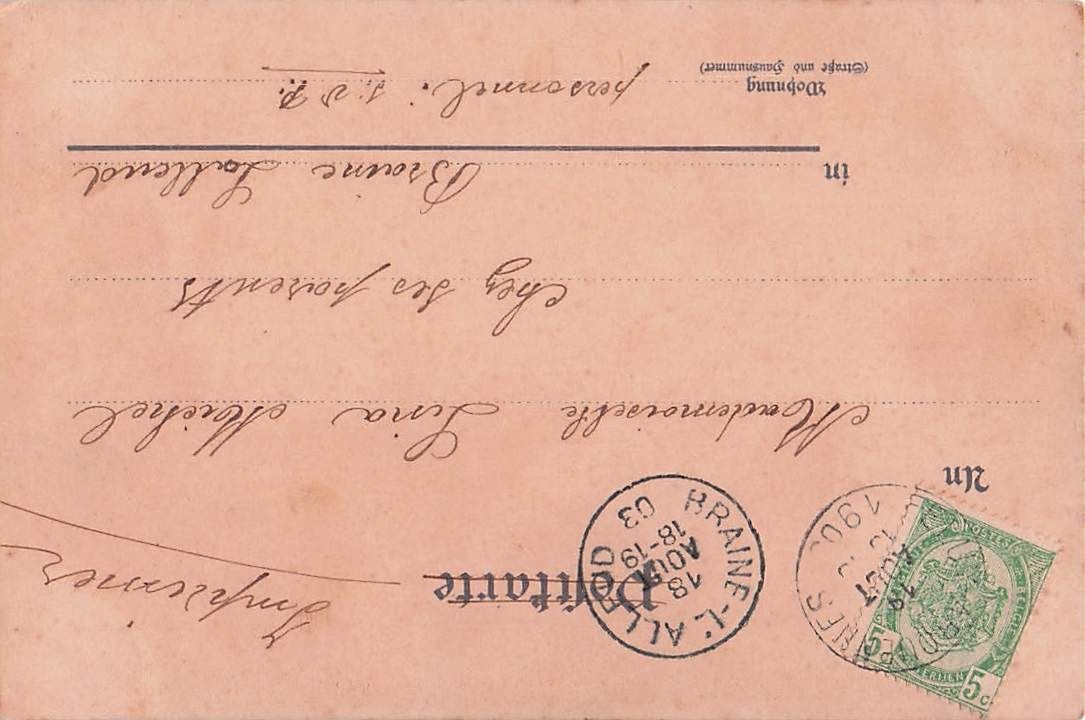 Postkarte
Imprimés
BRAINE-L'ALLEUD
18
AOUT
18-19
03
1903
AOUT
5c
5c
An
Mademoiselle Lina Michel
chez ses parents
in Braine Lalleud
Wohnung personnel. S. V. P.
(Straße und Hausnummer)